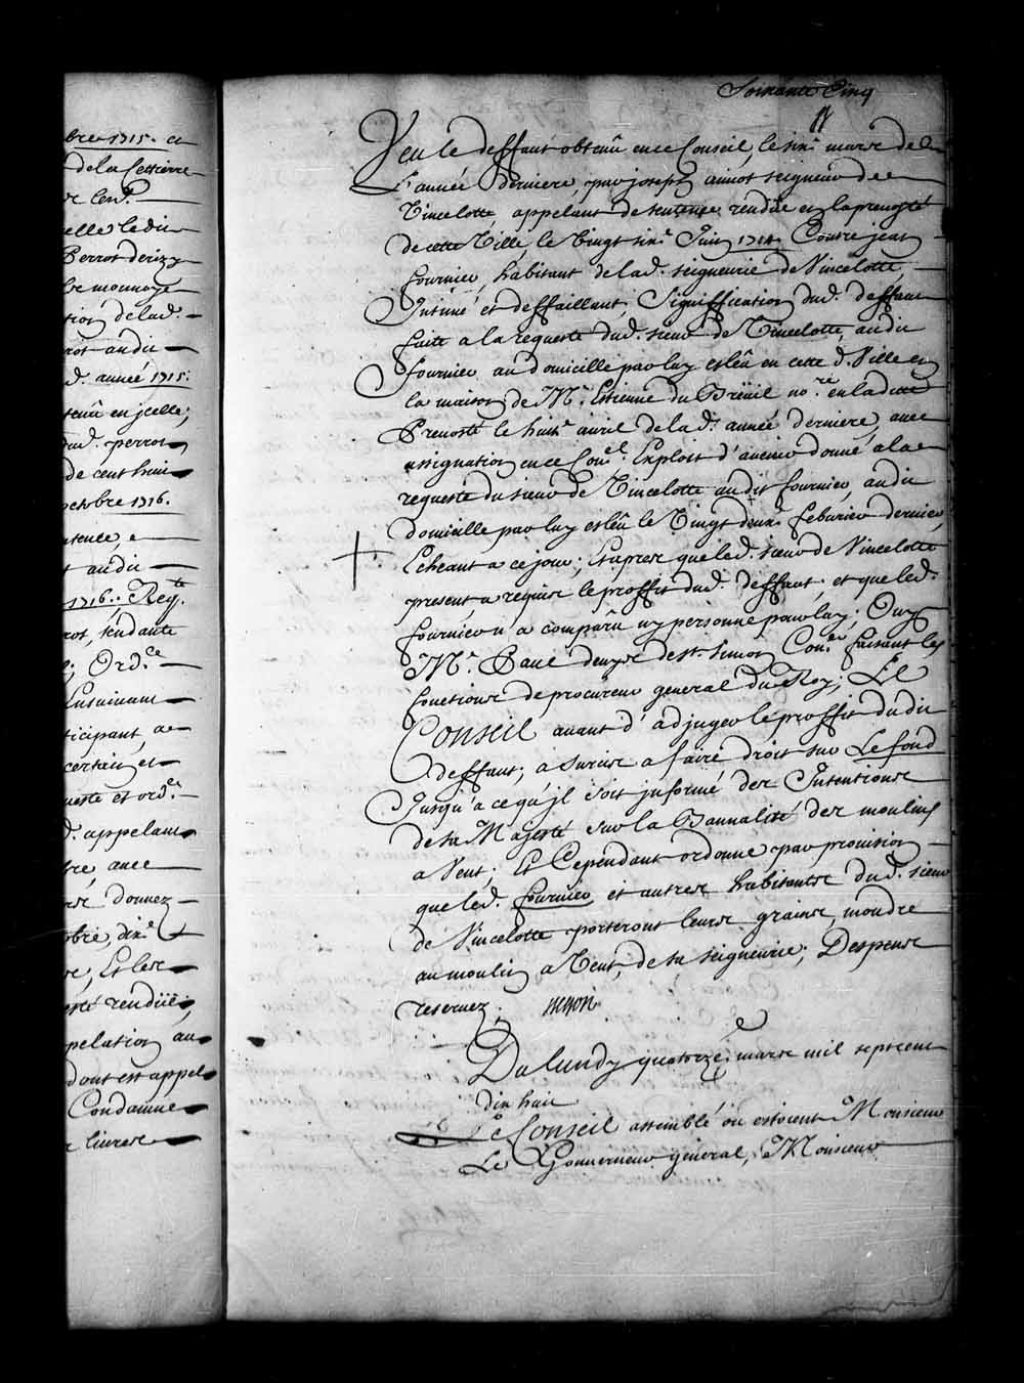 bre 1715. et
de la Cetiere
de lad.
elle ledit
Perrot derizy
be monnoye
tion de lad.
rot audit
d. année 1715.
tenu en jcelle;
dud. perrot
de cent huit
octobre 1716.
stence, e
t audit
1716. Req.te
rot, tendante
; Ord.ce
Ensuivant
ticipant, a
certain et
queste et ord.ce
d. appelant
bre, avec
donnez
obre, dix.e
; Et les
té rendüe
pelation au
dont est appel
Condamne
livres
Soixante Cinq
Veu le deffaut obtenû en ce Conseil, le six.e mars de
L'année derniere, par joseph amiot seigneur de
Vincelotte, appelant de sentence rendüe en la prevosté
de cette Ville, le Vingt six.e Juin 1714. Contre jean
fournier, habitant de lad. seigneurie de Vincelotte,
Intimé et deffaillant, Signiffication dud. deffaut
faite a la requeste dud. sieur de Vincelotte, audit
fournier au domicille par luy eslêu en cette d. Ville en
la maison de M.e Estienne du Breüil no.re en ladite
Prevosté le huit.e avril de lad. année derniere, avec
assignation en ce Con.el. Exploit d'avenir donné a la
requeste du sieur de Vincelotte audit fournier, audit
domicille par luy eslêu le Vingt deux.e feburier dernier,
Echeant a ce jour; Et apres que led. sieur de Vincelotte
present, a requis le proffit dud. deffaut, et que led.
fournier n'a comparû ny personne pour luy; Ouy
M.e Paul denys de S.t simon Con.er faisant les
fonctions de procureur general du Roy; LE
CONSEIL avant d'adjuger le proffit dudit
deffaut, a sursis a faire droit sur Le fond
Jusqu'a ce qu'jl soit jnformé des Intentions
de sa Majesté sur la Bannalité des moulins
a Vent; Et Cependant ordonne par provision
que led. fournier et autres habitants dud. sieur
de Vincelotte porteront leurs grains, moudre
au moulin a Vent, de sa seigneurie; Despens
reservez.
Du lundy quatorze.e mars mil sept cent
dix huit
Le Conseil assemblé ou estoient Monsieur
Le Gouverneur general, Monsieur